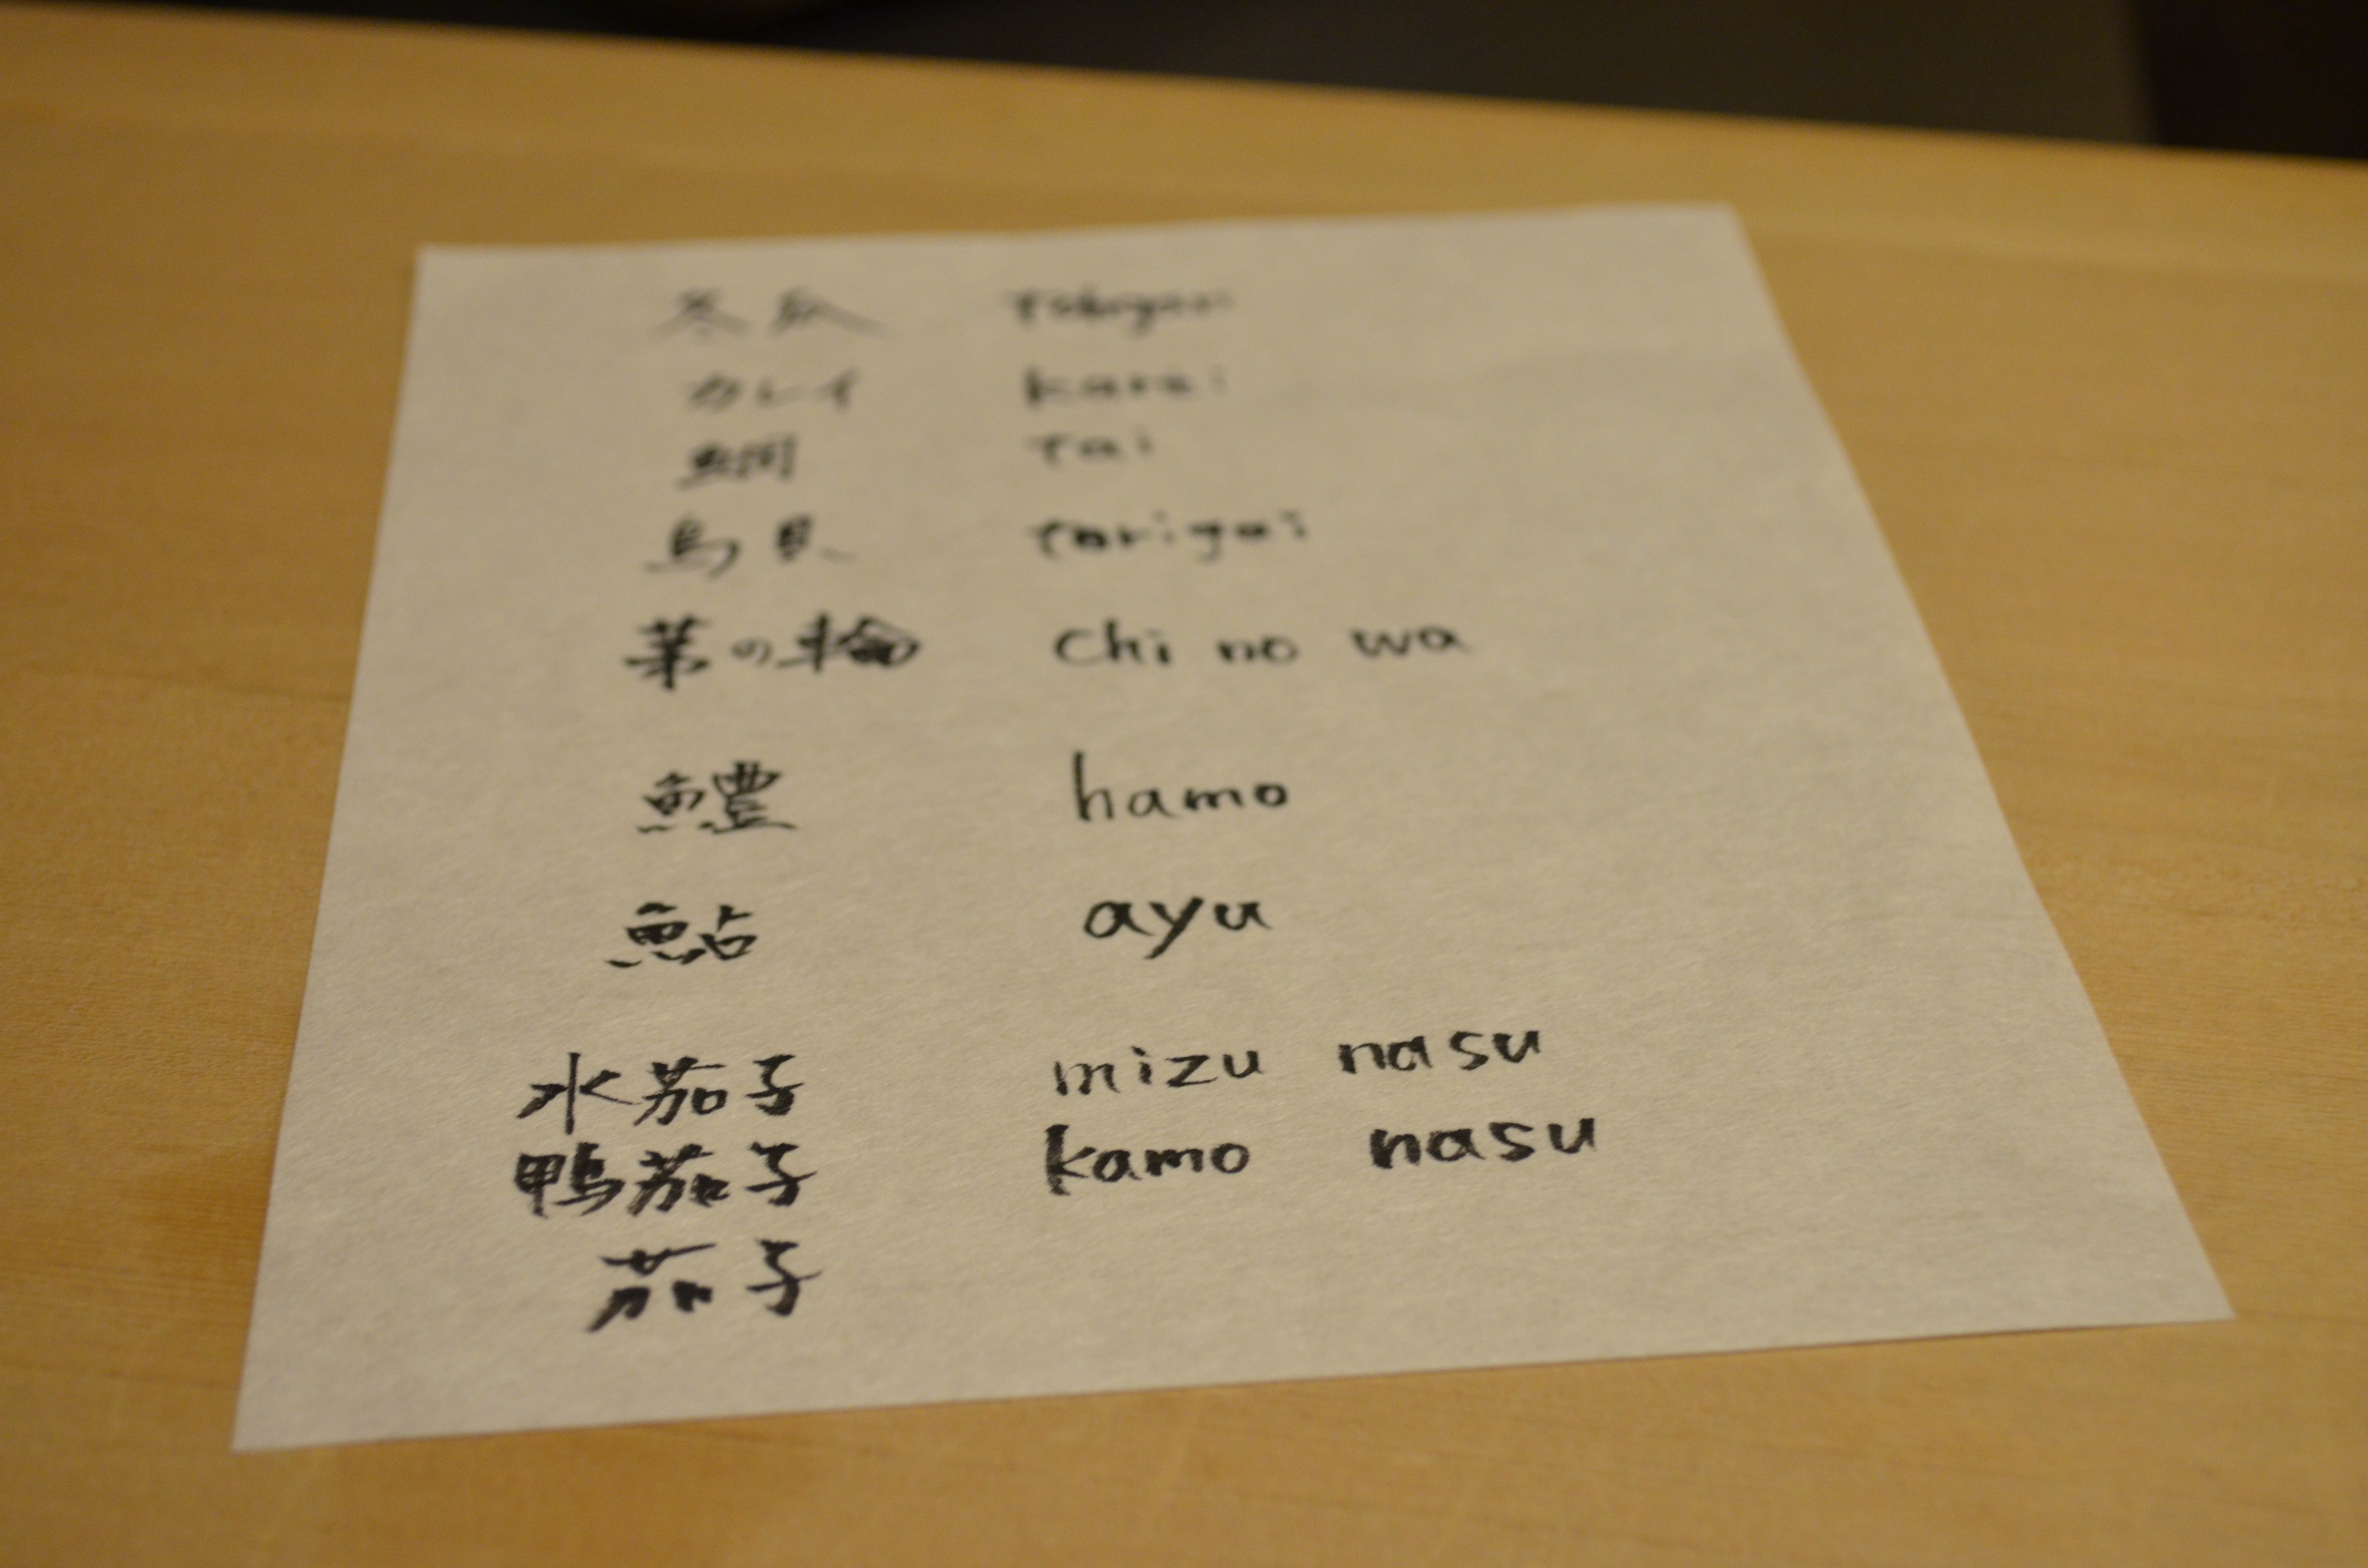 冬瓜 tōgan
カレイ karei
鯛 tai
鳥貝 torigai
茅の輪 chi no wa
鱧 hamo
鮎 ayu
水茄子 mizu nasu
鴨茄子 kamo nasu
茄子